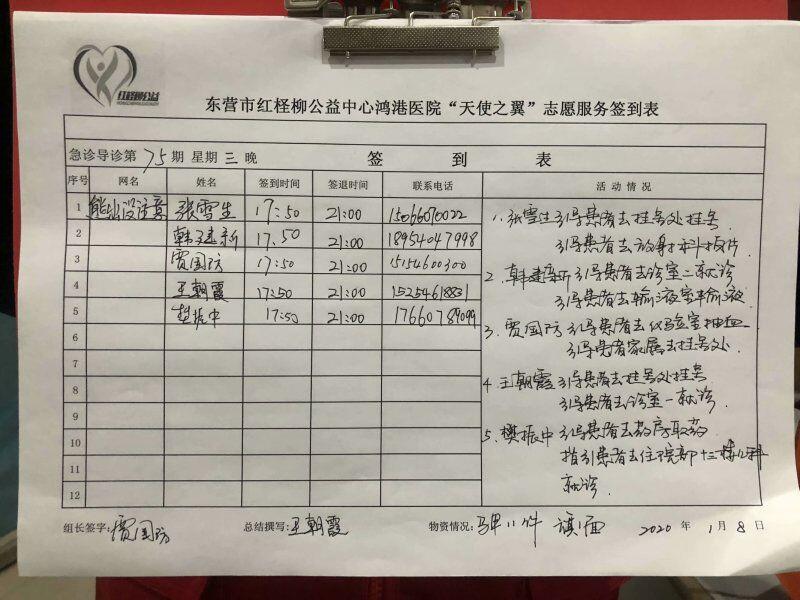 红柽柳公益
东营市红柽柳公益中心鸿港医院“天使之翼”志愿服务签到表
急诊导诊第75期 星期三晚 签到表
序号 网名 姓名 签到时间 签退时间 联系电话 活动情况
1 张雪生 17:50 21:00 15066070022
2 韩建新 17.50 21:00 18954047998
3 贾国防 17:50 21:00 15154600300
4 王朝霞 17:50 21:00 15254618831
5 樊振中 17:50 21:00 17660789099
6
7
8
9
10
11
12
1、张雪生 引导患者去挂号处挂号
引导患者去放射科拍片
2、韩建新 引导患者去诊室一就诊
引导患者去输液室输液
3、贾国防 引导患者去化验室抽血
引导患者家属去挂号处
4、王朝霞 引导患者去挂号处挂号
引导患者去诊室一就诊
5、樊振中 引导患者去药房取药
指引患者去住院部十二楼儿科
就诊.
组长签字:贾国防 总结撰写:王朝霞 物资情况: 2020年1月8日